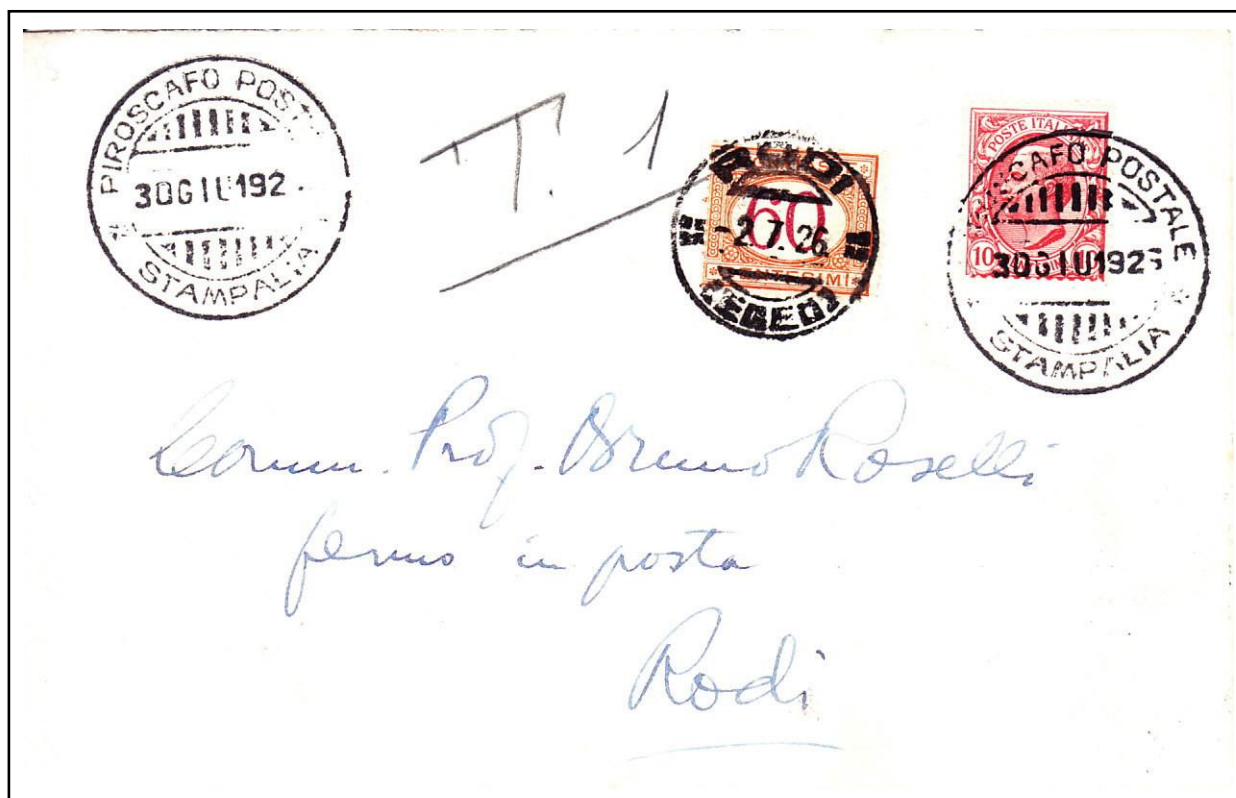 PIROSCAFO POST
30GIU192
STAMPALIA
T. 1
RODI
60
-2.7.26
(EGEO)
POSTE ITAL
10
PIROSCAFO POSTALE
30GIU1926
STAMPALIA
Comm. Prof. Bruno Roselli
fermo in posta
Rodi